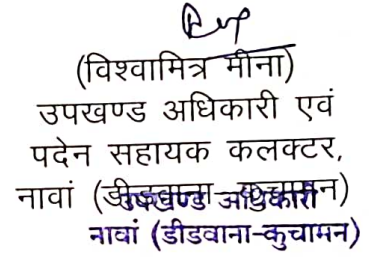 (विश्वामित्र मीना)
उपखण्ड अधिकारी एवं
पदेन सहायक कलक्टर,
नावां (डीडवाना-कुचामन)
उपखण्ड अधिकारी
नावां (डीडवाना-कुचामन)